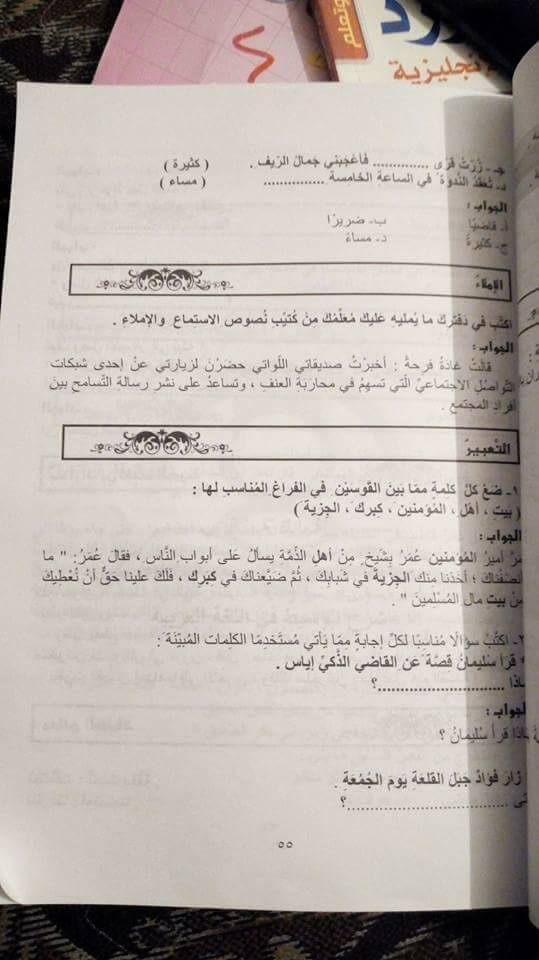 وتعلم
نجليزية
جـ - زُرْتُ قُرًى .............. فَأعْجَبَني جَمالُ الرّيفِ . ( كثيرة )
د- تُعْقَدُ النَّدْوَةُ في السّاعةِ الخامسةِ ............... ( مساء )
الجواب :
أ- قاضيًا ب- ضريرًا
ج- كثيرةً د- مساءً
الإملاءُ
اكتُبْ في دَفتَرِكَ ما يُمليهِ عَليكَ مُعلِّمُكَ مِنْ كُتيّبِ نُصوصِ الاستِماعِ والإملاءِ .
الجواب :
قالتْ غادَةُ فَرِحةً : أخبرْتُ صديقاتي اللّواتي حضَرْنَ لزيارتي عنْ إحدى شبكات
التّواصُلِ الاجتماعيِّ الّتي تسهمُ في محاربَةِ العنفِ ، وتساعدُ على نشرِ رسالةِ التّسامحِ بينَ
أفرادِ المجتمعِ .
التّعبيرُ
١- ضَعْ كلَّ كلمةٍ ممّا بَينَ القَوسَيْنِ في الفراغِ المُناسبِ لها :
( بيتِ ، أهْلِ ، المُؤمنينَ ، كبركَ ، الجِزيةَ )
الجواب :
مرَّ أميرُ المُؤمنينَ عُمَرُ بِشَيخٍ مِنْ أهلِ الذِّمَّةِ يسألُ على أبوابِ النَّاسِ ، فقالَ عُمَرُ: " ما
أنصَفْناكَ ؛ أخَذْنا منكَ الجِزيةَ في شَبابِكَ ، ثُمَّ ضيّعْناكَ في كِبَرِكَ ، فلَكَ علينا حَقٌّ أنْ نُعْطيَكَ
مِنْ بيتِ مالِ المُسْلمينَ " .
٢- اكتُبْ سؤالًا مُناسِبًا لكلِّ إجابةٍ ممّا يأتي مُستَخدِمًا الكلماتِ المُبيّنَةَ :
* قرأَ سُليمانُ قصّةً عَنِ القاضي الذَّكيِّ إياس .
ماذا .........................؟
الجواب :
ماذا قرأَ سُليمانُ ؟
زارَ فُؤادٌ جَبَلَ القلعَةِ يَومَ الجُمُعَةِ .
تى ................................؟
٥٥